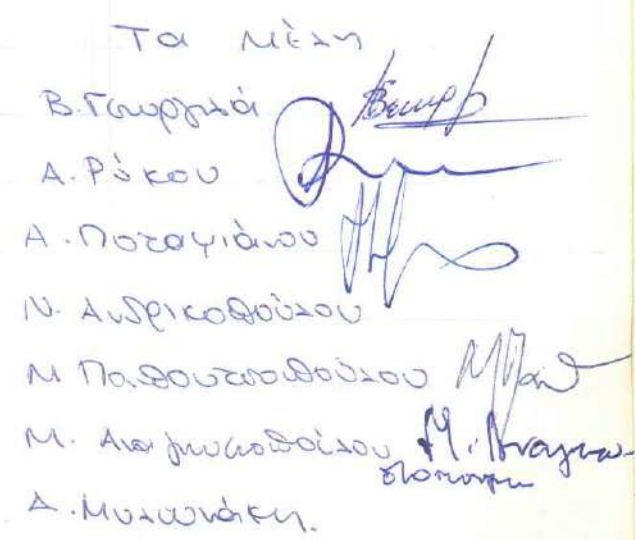 Τα Μέλη
Β. Γεωργιλά
Α. Ρόκου
Α. Ποταψιάνου
Ν. Ανδρικοπούλου
Μ Παπουτσοπούλου
Μ. Αναγνωστοπούλου Μ. Αναγνω-
στοπουλου
Δ. Μυλωνάκη.